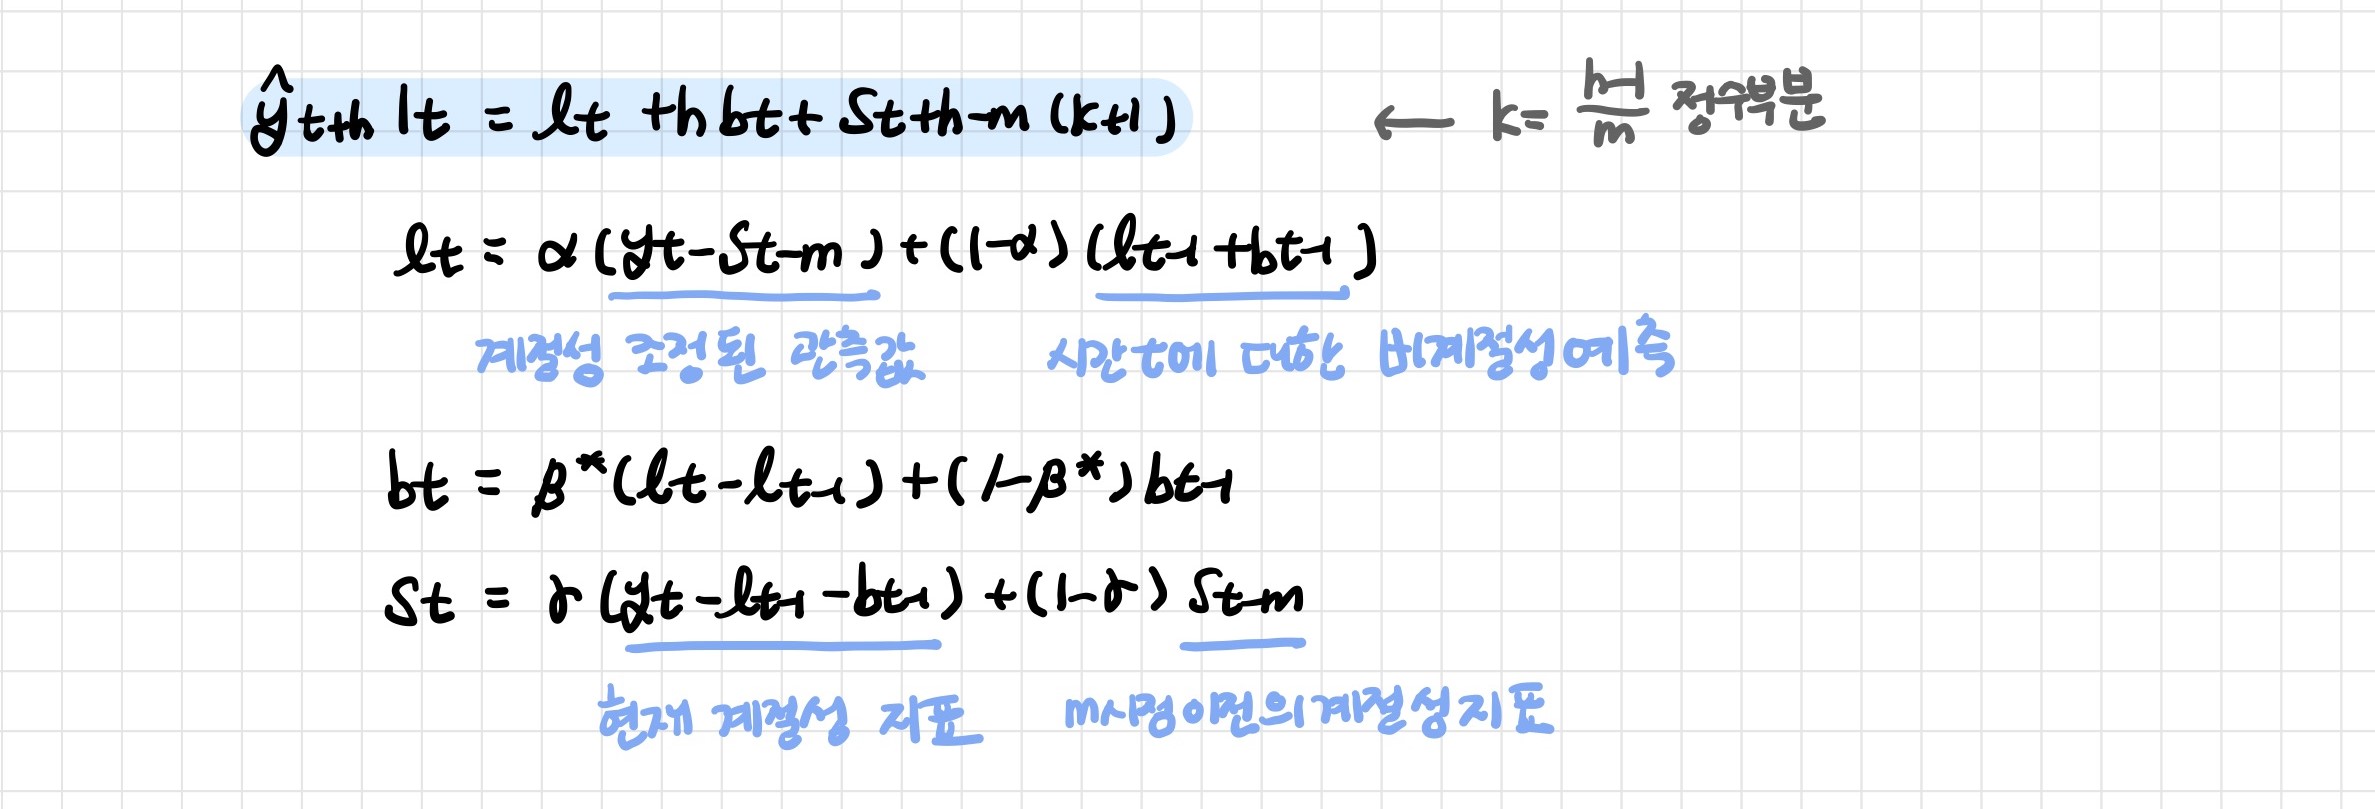 ŷt+h|t = lt + hbt + St+h-m(k+1) ← k= h-1/m 정수부분
lt = α(yt-St-m)+(1-α)(lt-1+bt-1)
계절성 조정된 관측값 시간t에 대한 비계절성예측
bt = β*(lt-lt-1)+(1-β*)bt-1
St = γ(yt-lt-1-bt-1)+(1-γ)St-m
현재 계절성 지표 m시점이전의계절성지표